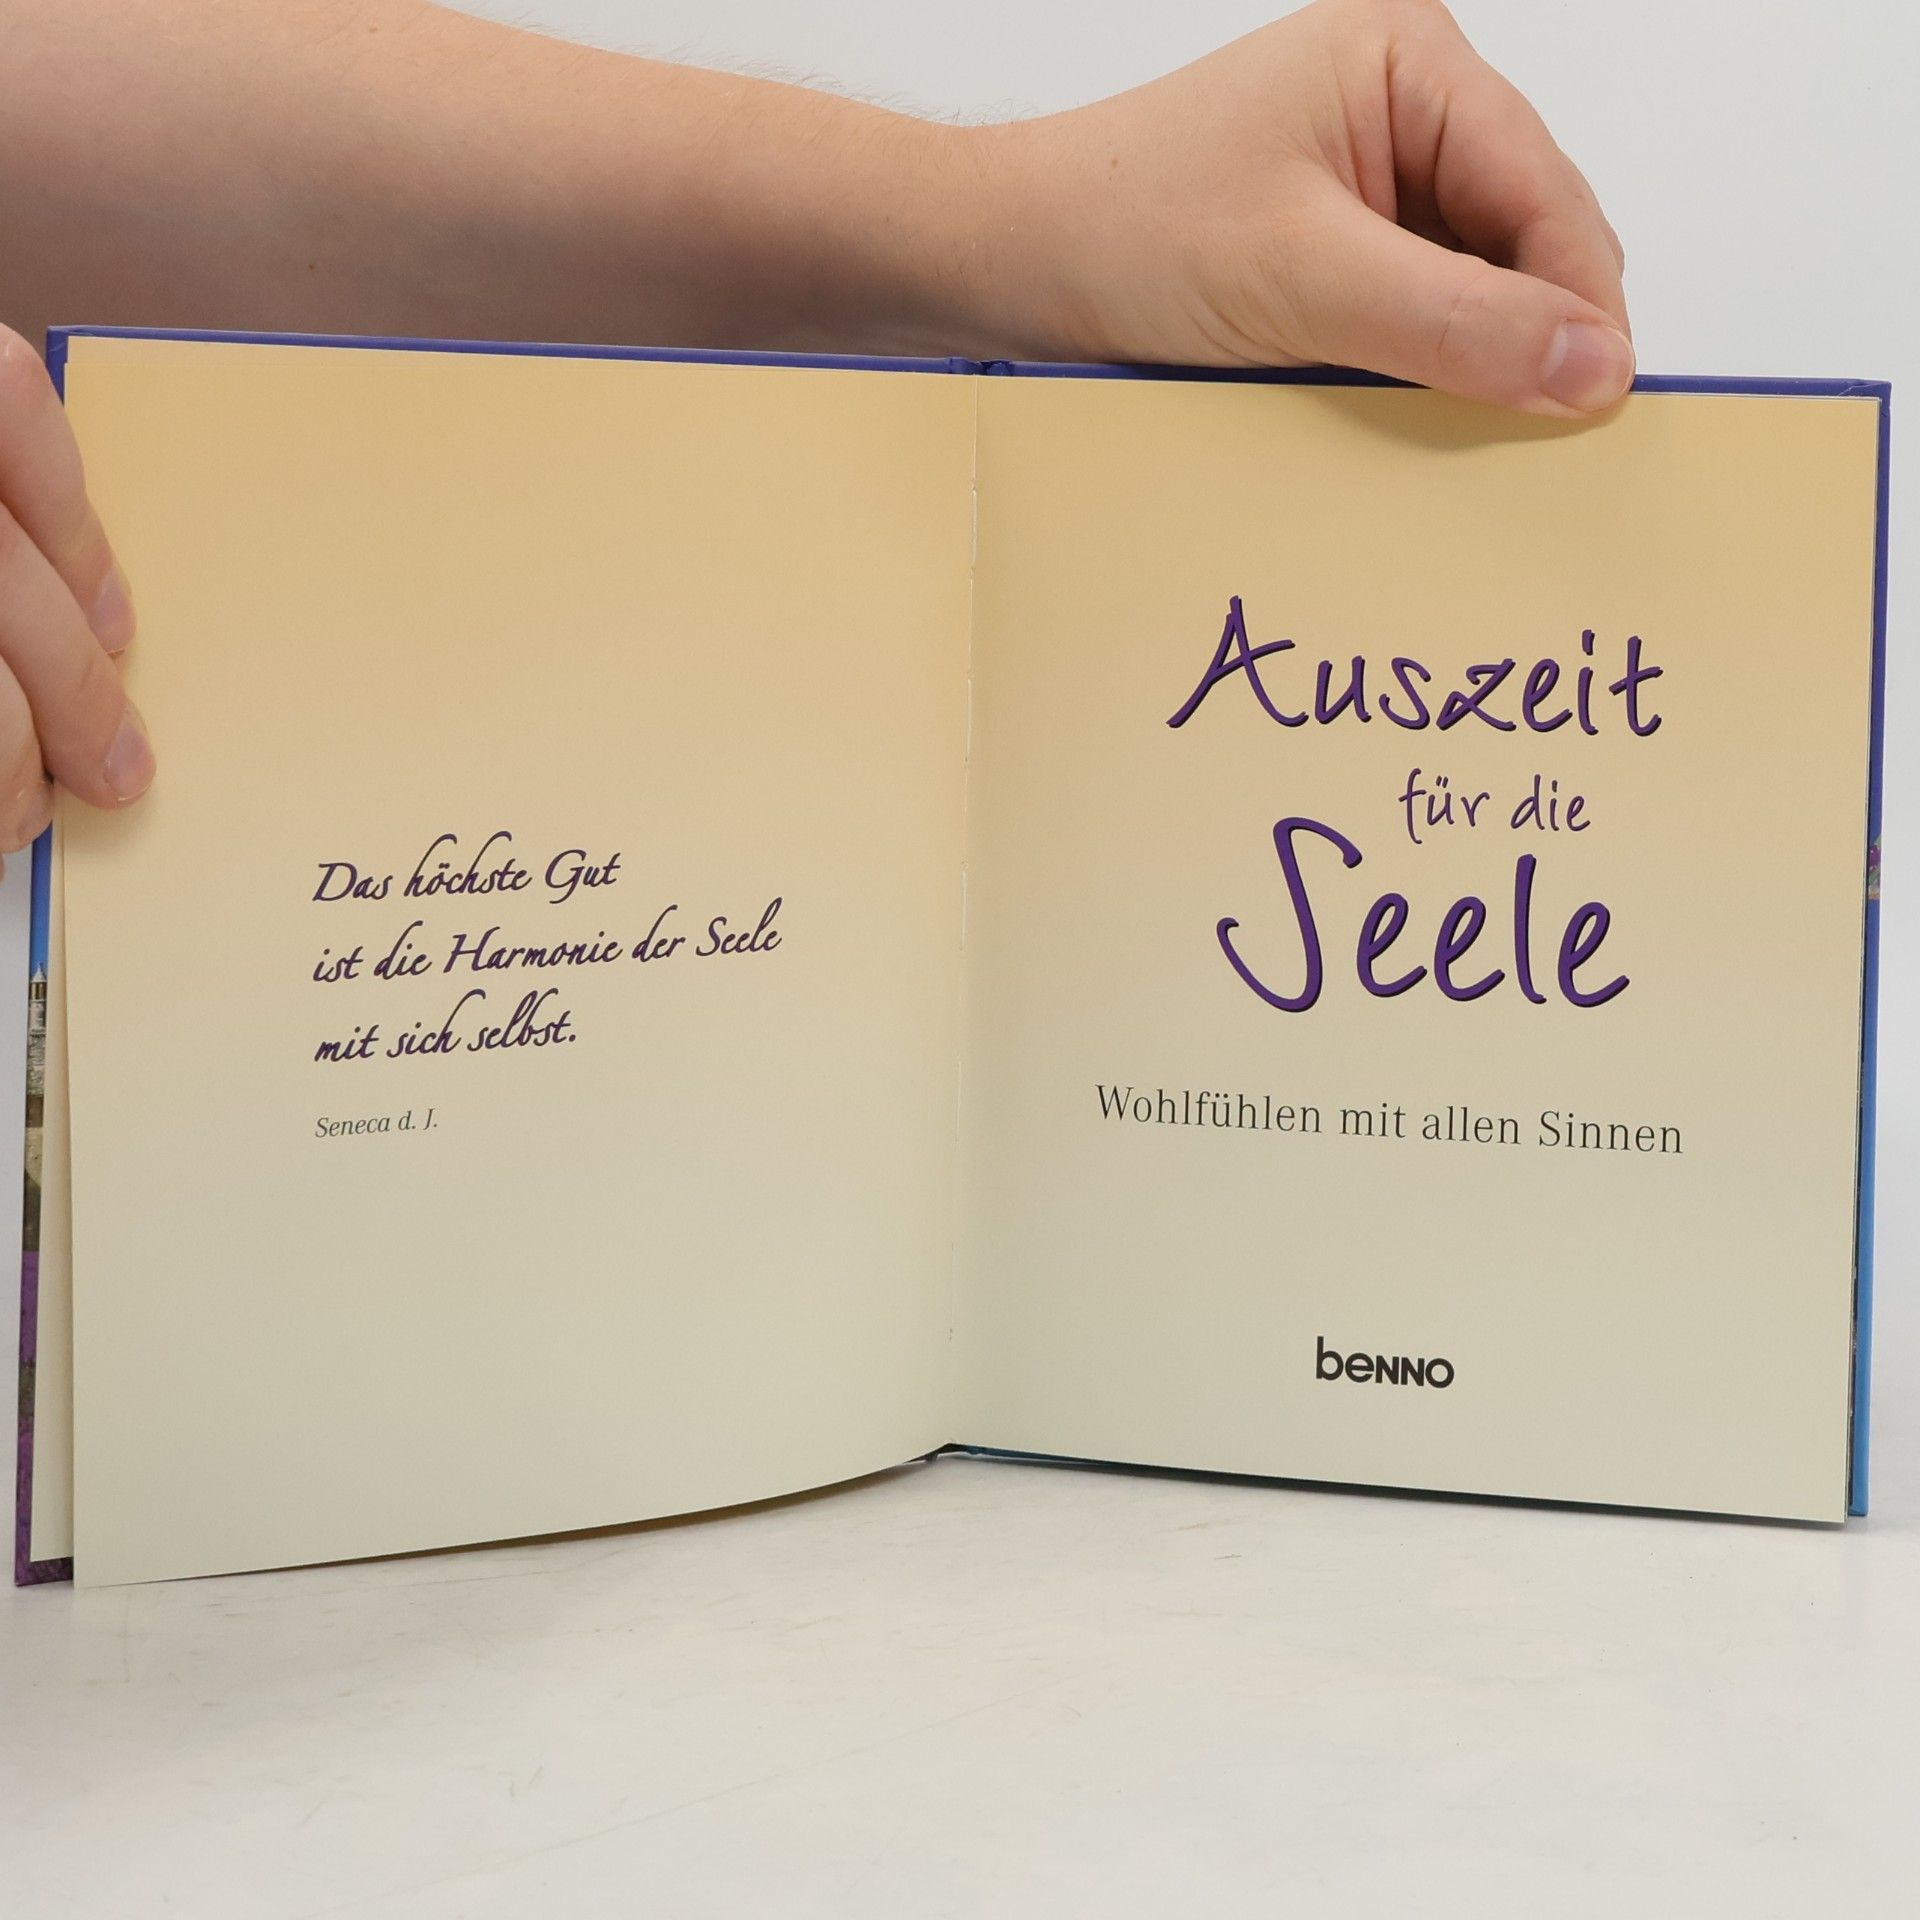 Das höchste Gut
ist die Harmonie der Seele
mit sich selbst.
Seneca d. J.
Auszeit
für die
Seele
Wohlfühlen mit allen Sinnen
benno